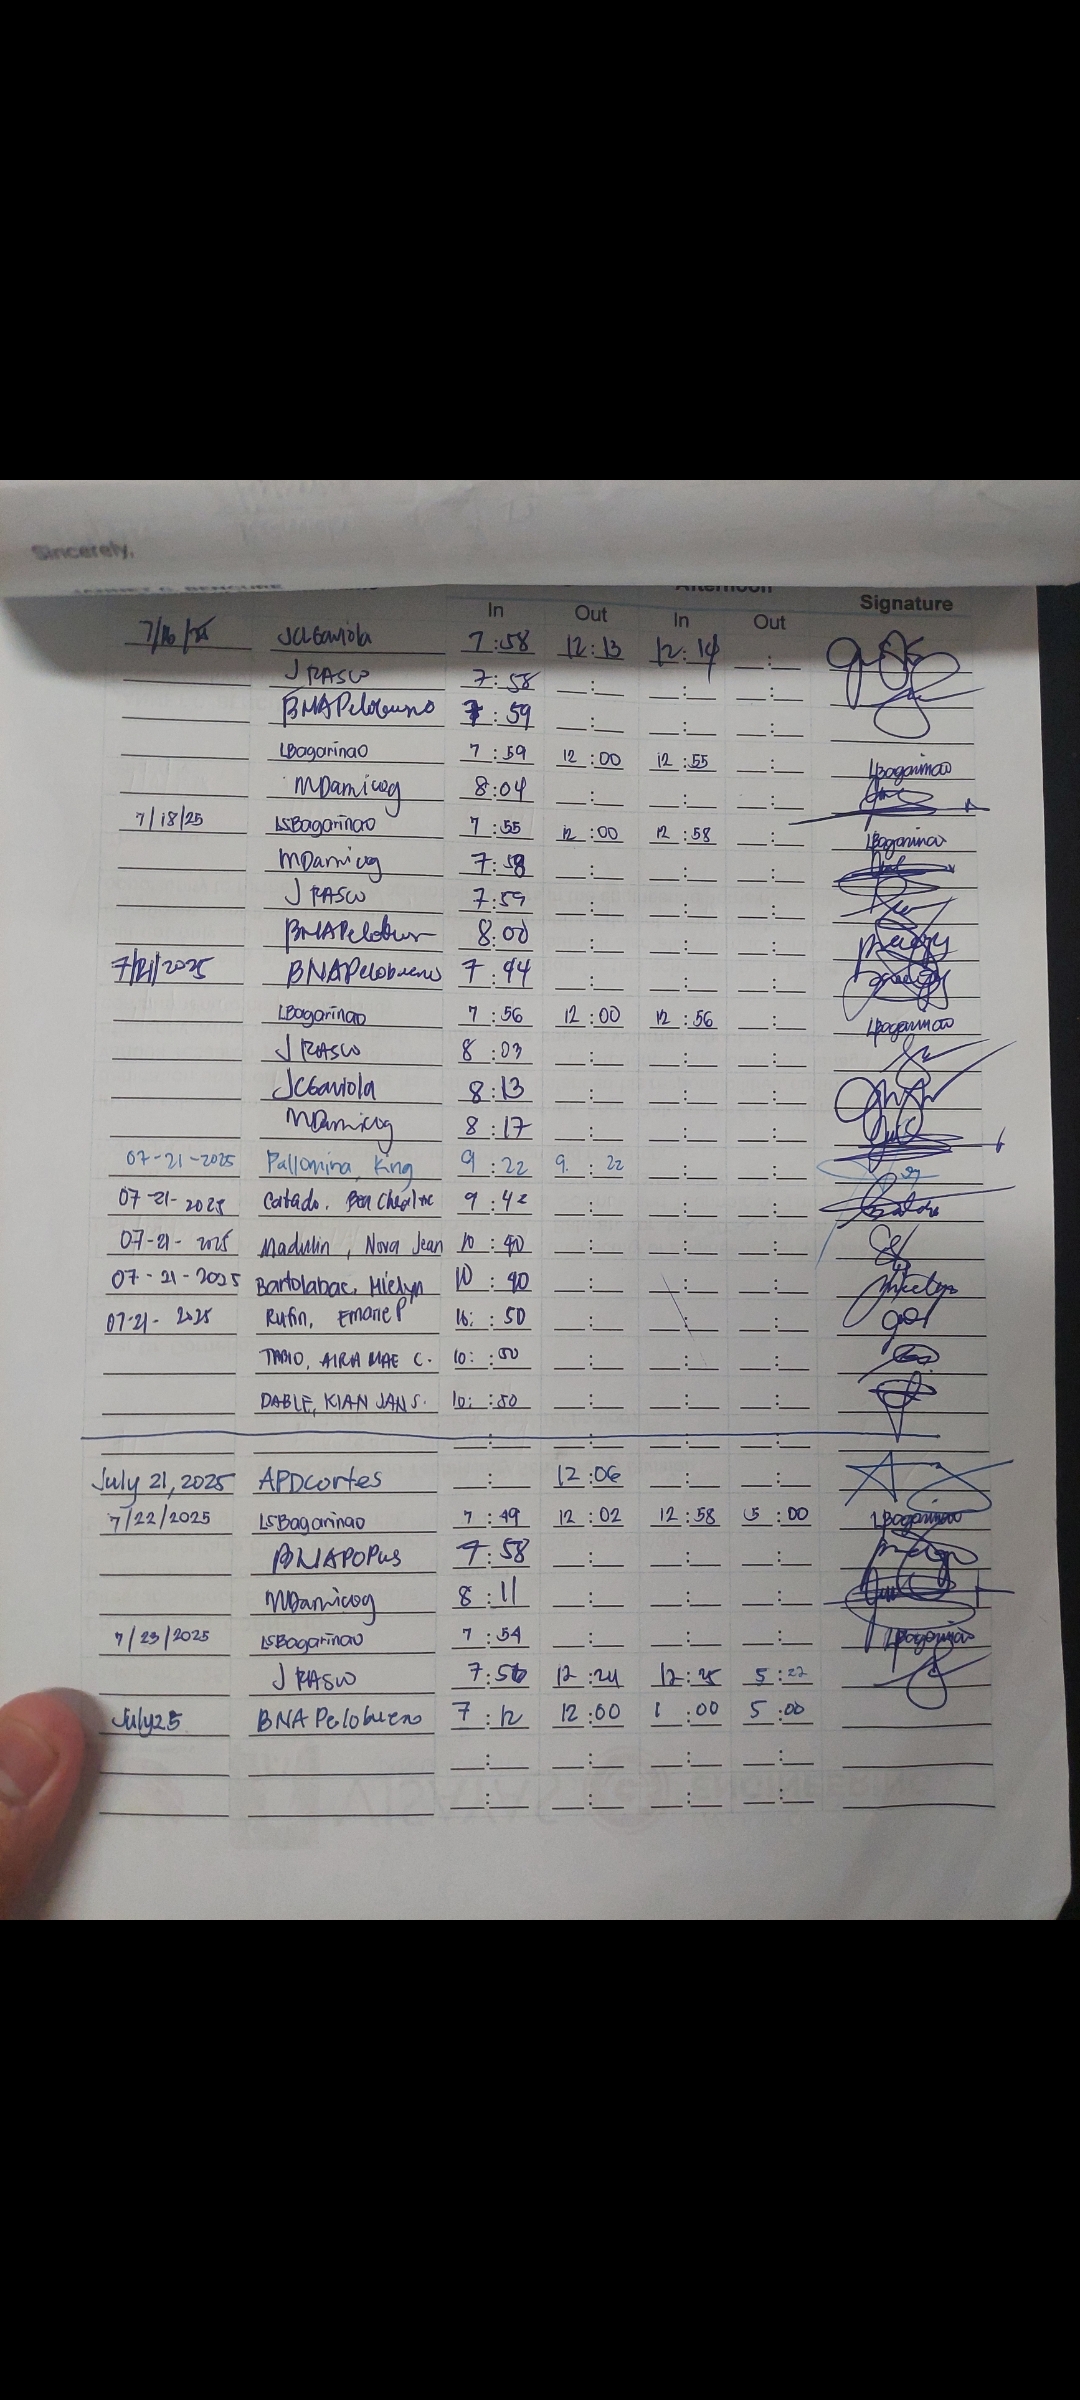 Sincerely,
Afternoon
In Out In Out Signature
7/16/25 JCGaviola 7:58 12:13 12:14 __:__
J RASCO 7:58 __:__ __:__ __:__
BNAPelobueno 7:59 __:__ __:__ __:__
LBagarinao 7:59 12:00 12:55 __:__ LBagarinao
MDamicog 8:04 __:__ __:__ __:__
7/18/25 LSBagarinao 7:55 12:00 12:58 __:__ LBagarinao
MDamicog 7:58 __:__ __:__ __:__
J RASCO 7:59 __:__ __:__ __:__
BNAPelobueno 8:00 __:__ __:__ __:__
7/21/2025 BNAPelobueno 7:44 __:__ __:__ __:__
LBagarinao 7:56 12:00 12:56 __:__ LBagarinao
J RASCO 8:03 __:__ __:__ __:__
JCGaviola 8:13 __:__ __:__ __:__
MDamicog 8:17 __:__ __:__ __:__
07-21-2025 Pallomina, King 9:22 9:22 __:__ __:__
07-21-2025 Catado, Bea 9:42 __:__ __:__ __:__
07-21-2025 Madulin, Nova Jean 10:40 __:__ __:__ __:__
07-21-2025 Bartolabac, Mielyn 10:40 __:__ __:__ __:__
07-21-2025 Rufin, P 10:50 __:__ __:__ __:__
TABIO, AIRA MAE C. 10:50 __:__ __:__ __:__
DABLE, KIAN JAN S. 10:50 __:__ __:__ __:__
__:__ __:__ __:__ __:__
July 21, 2025 APDCortes __:__ 12:06 __:__ __:__
7/22/2025 LSBagarinao 7:49 12:02 12:58 5:00 LBagarinao
BNAPOPus 7:58 __:__ __:__ __:__
MDamicog 8:11 __:__ __:__ __:__
7/23/2025 LSBagarinao 7:54 __:__ __:__ __:__ LBagarinao
J RASCO 7:56 12:24 12:25 5:22
July 25 BNAPelobueno 7:12 12:00 1:00 5:00
__:__ __:__ __:__ __:__
__:__ __:__ __:__ __:__